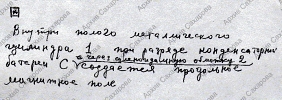 Внутри полого металлического
цилиндра 1 при разряде конденсаторной
через соленоидальную обмотку 2
батареи C создаётся продольное
магнитное поле